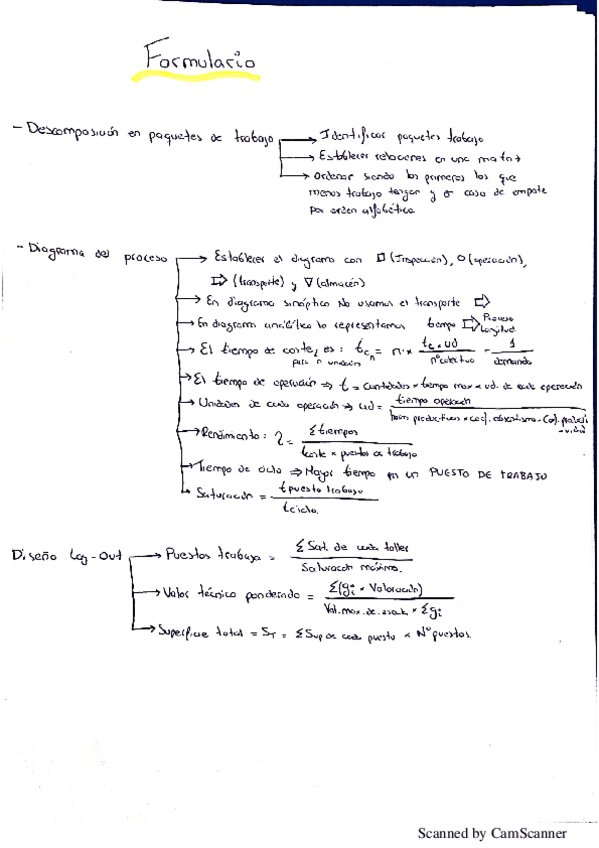 Formulario
- Descomposición en paquetes de trabajo → Identificar paquetes trabajo
→ Establecer relaciones en una matriz
→ Ordenar siendo los primeros los que
menos trabajo tengan y en caso de empate
por orden alfabético
- Diagrama del proceso → Establecer el diagrama con □ (Inspección), O (operación),
⇨ (transporte) y ∇ (almacén)
→ En diagrama sinóptico No usamos el transporte ⇨
→ En diagrama analítico lo representamos tiempo ⇨ Proceso Longitud
→ El tiempo de corte, es: tcn = n · tc × ud / nº colectivo - 1 / demanda
para n unidades
→ El tiempo de operación ⇒ t = cantidades × tiempo max × ud. de cada operación
→ Unidades de cada operación ⇒ ud = tiempo operación / horas productivas × coef. absentismo - Coef.
→ Rendimiento: η = Σ tiempos / tcorte × puestos de trabajo
→ Tiempo de ciclo ⇒ Mayor tiempo en un PUESTO DE TRABAJO
→ Saturación = t puesto trabajo / t ciclo.
Diseño Lay-Out → Puestos trabajo = Σ Sat. de cada taller / Saturación máxima.
→ Valor técnico ponderado = Σ(gi × Valoración) / Val. max. de escal × Σ gi
→ Superficie total = ST = Σ Sup de cada puesto × Nº puestos.
Scanned by CamScanner